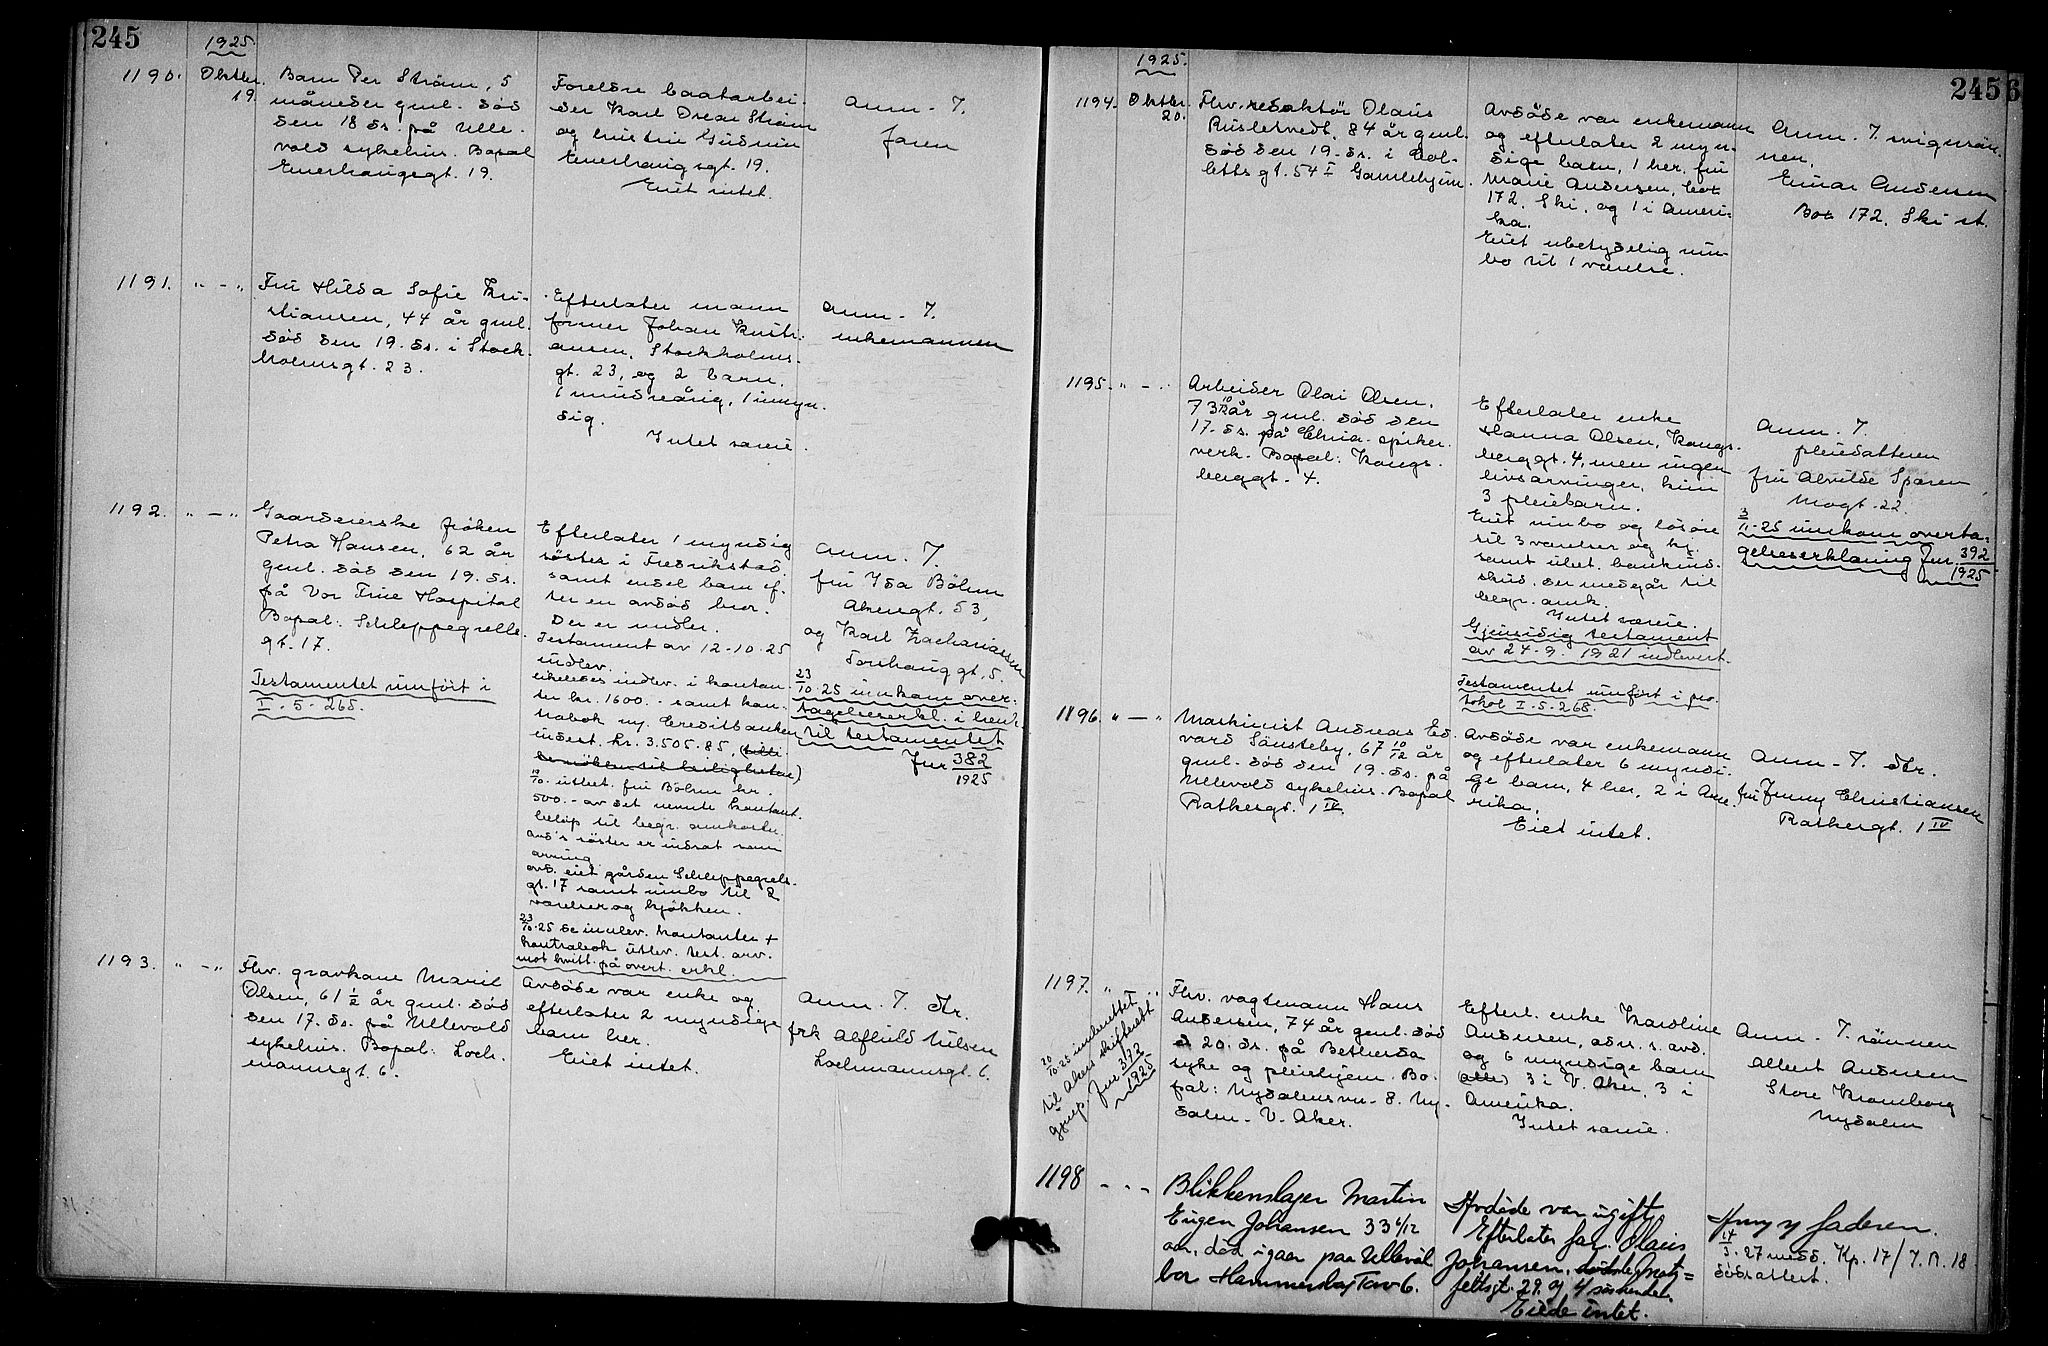 245
1925.
1190.
Oktbr.
19.
Barn Per Strøm, 5
måneder gml. død
den 18 ds. på Ulle-
vold sykehus. Bopal
Enerhauggt. 19.
Foreldre baatarbei-
der Karl Oscar Strøm
og hustru Gudrun
Enerhaugsgt. 19.
Eiet intet.
Anm. 7.
faren
1191.
" - "
Fru Hilda Sofie Kri-
stiansen, 44 år gml.
død den 19. ds. i Stock-
holmsgt. 23.
Efterlater mann
Johan Kristi-
ansen, Stockholms-
gt. 23, og 2 barn,
1 mindreårig, 1 umyn-
dig.
Intet være.
Anm. 7.
enkemannen
1192.
" - "
Gaardeierske frøken
Petra Hansen, 62 år
gml. død den 19. ds.
på Vor Frue Hospital
Bopal: Schleppegrells-
gt. 17.
Testamentet innført i
I. 5. 265.
Efterlater 1 myndig
søster i Fredrikstad
samt endel barn ef-
ter en avdød bror.
Der er midler.
Testament av 12-10-25
indlev.
likeledes indlev. i kontan-
ter kr. 1600.- samt kon-
trabok m. Creditbanken
indest. kr. 3.505.85,
19/10. utbet. fru Bölum kr.
500.- av det nevnte kontant-
beløp til begr. omkostn.
avd's søster er indsat som
arving.
avd. eiet gården Schleppegrels-
gt. 17 samt innbo til 2
værelser og kjøkken.
23/10-25 de innlev. kontanter +
kontrabok utlev. test. arv.
mot kvitt. på overt. erkl.
Anm. 7.
fru Ida Bölum
Akersgt. 53,
og Karl Zachariassen
Torshauggt. 5.
23/10-25 innkom over-
tagelseserkl. i henh.
til testamentet
Jnr 382/1925
1193.
" - "
Fhv. gravkone Marie
Olsen, 61 1/2 år gml. død
den 17. ds. på Ullevold
sykehus. Bopal: Loch-
mannsgt. 6.
Avdøde var enke og
efterlater 2 myndige
barn her.
Eiet intet.
Anm. 7. dtr.
frk Alfhild Nilsen
Lochmannsgt. 6.
245
6
1925.
1194.
Oktbr.
20.
Fhv. redaktør Olaus
Rusletvedt, 84 år gml.
død den 19. ds. i Col-
letts gt. 54 I Gamlehjem.
Avdøde var enkemann
og efterlater 2 myn-
dige barn, 1 her, fru
Marie Andersen, box
172, Ski, og 1 i Ameri-
ka.
Eiet ubetydelig inn-
bo til 1 værelse.
Anm. 7. svigersøn-
nen,
Einar Andersen
Box 172, Ski st.
1195.
" - "
Arbeider Olai Olsen,
73 10/12 år gml. død den
17. ds. på Chria. spiker-
verk. Bopal: Kongs-
berggt. 4.
Efterlater enke
Hanna Olsen, Kongs-
berggt. 4, men ingen
livsarvinger, kun
3 pleiebarn.
Eiet innbo og løsøre
til 3 værelser og kj.
samt ubet. bankind-
skud. der medgår til
begr. omk.
Intet være.
Gjensidig testament
av 24-9-1921 indlevert.
Testamentet innført i pro-
tokol I. 5. 268.
Anm. 7.
pleiedatteren
fru Alvilde Sparen,
Mogt. 22.
3/11-25 innkom overta-
gelseserklæring Jnr. 392/1925
1196.
" - "
Maskinist Andreas Ed-
vard Sønsteby, 67 10/12 år
gml. død den 19. ds. på
Ullevold sykehus. Bopal
Ratkesgt. 1 IV.
Avdøde var enkemann
og efterlater 6 myndi-
ge barn, 4 her, 2 i Ame-
rika.
Eiet intet.
Anm. 7. dtr.
fru Jenny Christiansen
Ratkesgt. 1 IV
1197.
" - "
20/10-25 innberettet
til Akers skifterett
Jnr 372/1925
Fhv. vagtmann Hans
Andersen, 74 år gml. død
d 20. ds. på Bethesda
syke og pleiehjem. Bo-
pal: Nydalensvn. 8. Ny-
dalen. V. Aker.
Efterl. enke Karoline
Andersen, adr. s. avd.
og 6 myndige barn
3 i V. Aker, 3 i
Amerika.
Intet være.
Anm. 7. sønnen
Albert Andersen
Store Kronborg
Nydalen
1198
- - -
Blikkenslager Martin
Eugen Johansen 33 4/12
aar, død igaar paa Ulleval
bor Hammerslag Torv 6.
Avdøde var ugift
Efterlater far. Olaus
Johansen, Motz=
feltsgt. 29. og 4 søskende.
Eiede intet.
Anm 7 faderen.
14/3-27 medd. Kp. 17/7. A. 18
dødsattest.